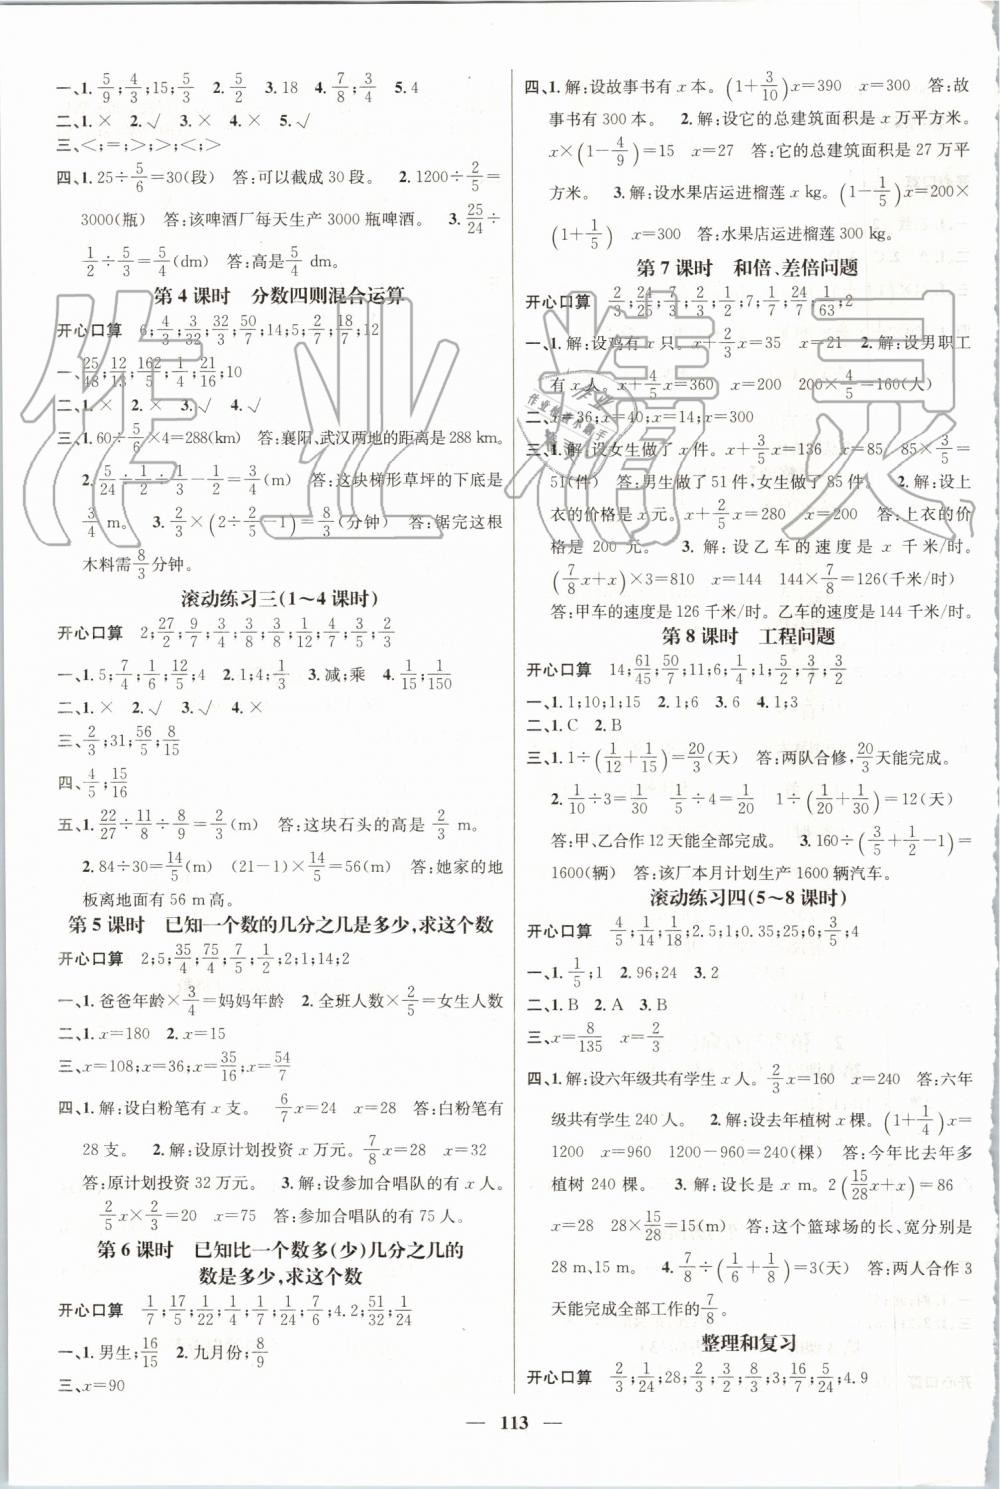 一、1. 5/9;4/3;15;5/3  2. 5/2  3. 18  4. 7/8;3/4  5. 4
二、1. ×  2. √  3. ×  4. ×  5. √
三、<;=;>;>;<;>
四、1. 25÷5/6=30(段)  答:可以截成 30 段。  2. 1200÷2/5=
3000(瓶)  答:该啤酒厂每天生产 3000 瓶啤酒。  3. 25/24÷
1/2÷5/3=5/4(dm)  答:高是5/4 dm。
第 4 课时  分数四则混合运算
开心口算  6;4/3;3/32;32/3;50/7;14;5;2/7;18/7;12
一、25/48;12/13;162/5;1/4;21/16;10
二、1. ×  2. ×  3. √  4. √
三、1. 60÷5/6×4=288(km)  答:襄阳、武汉两地的距离是 288 km。
2. 5/24÷1/2÷1/2-1/2=3/4(m)  答:这块梯形草坪的下底是
3/4 m。  3. 2/3×(2÷2/5-1)=8/3(分钟)  答:锯完这根
木料需8/3分钟。
滚动练习三(1～4 课时)
开心口算  2;27/2;9/7;4/3;3/8;1/9;1/4;3/5;1/7;4/3
一、1. 5;7/4;1/6;12/5;4  2. 1;4;1/3  3. 减;乘;  4. 1/15;1/150
二、1. ×  2. √  3. √  4. ×
三、2/3;31;56/5;8/15
四、4/5;15/16
五、1. 22/27÷11/8÷8/9=2/3(m)  答:这块石头的高是 2/3 m。
2. 84÷30=14/5(m)  (21-1)×14/5=56(m)  答:她家的地
板离地面有 56 m 高。
第 5 课时  已知一个数的几分之几是多少,求这个数
开心口算  2;5;35/4;75/4;7/5;1/2;2;1;14;2
一、1. 爸爸年龄×3/4=妈妈年龄  2. 全班人数×2/5=女生人数
二、1. x=180  2. x=15
三、x=108;x=36;x=35/16;x=54/7
四、1. 解:设白粉笔有 x 支。  6/7x=24  x=28  答:白粉笔有
28 支。  2. 解:设原计划投资 x 万元。7/8x=28  x=32
答:原计划投资 32 万元。  3. 解:设参加合唱队的有 x 人。
2/5x×2/3=20  x=75  答:参加合唱队的有 75 人。
第 6 课时  已知比一个数多(少)几分之几的
数是多少,求这个数
开心口算  1/7;17/5;1/22;1/4;1/24;7/6;4.2;51/32;1/24
一、1. 男生;16/15  2. 九月份;8/9
三、x=90
四、1. 解:设故事书有 x 本。(1+3/10)x=390  x=300  答:故
事书有 300 本。  2. 解:设它的总建筑面积是 x 万平方米。
x×(1-4/9)=15  x=27  答:它的总建筑面积是 27 万平
方米。  3. 解:设水果店运进榴莲 x kg。(1-1/5)x=200×
(1+1/5)  x=300  答:水果店运进榴莲 300 kg。
第 7 课时  和倍、差倍问题
开心口算  2/3;24/25;7/3;2/3;1/2;7;1/7;24/7;1/63;2
一、1. 解:设鸡有 x 只。x+2/3x=35  x=21  2. 解:设男职工
有 x 人。x+4/5x=360  x=200  200×4/5=160(人)
二、x=36;x=40;x=14;x=300
三、1. 解:设女生做了 x 件。x+3/5x=136  x=85  85×3/5=
51(件)  答:男生做了 51 件,女生做了 85 件。  2. 解:设上
衣的价格是 x 元。x+2/5x=280  x=200  答:上衣的价
格是 200 元。  3. 解:设乙车的速度是 x 千米/时。
(7/8x+x)×3=810  x=144  144×7/8=126(千米/时)
答:甲车的速度是 126 千米/时,乙车的速度是 144 千米/时。
第 8 课时  工程问题
开心口算  14;61/45;50/7;11;6;1/4;1;5/2;3/7;3/2
一、1. 1;10;1;15  2. 1;6  3. 6  4. 1;3
二、1. C  2. B
三、1. 1÷(1/12+1/15)=20/3(天)  答:两队合修,20/3天能完成。
2. 1/10÷3=1/30  1/5÷4=1/20  1÷(1/20+1/30)=12(天)
答:甲、乙合作 12 天能全部完成。  3. 160÷(3/5+1/2-1)=
1600(辆)  答:该厂本月计划生产 1600 辆汽车。
滚动练习四(5～8 课时)
开心口算  4/5;1/14;1/18;2.5;1;0.35;25;6;3/5;4
一、1. 1/5;1  2. 96;24  3. 2
二、1. B  2. A  3. B
三、x=8/135  x=2/3
四、1. 解:设六年级共有学生 x 人。2/3x=160  x=240  答:六年
级共有学生 240 人。  2. 解:设去年植树 x 棵。(1+1/4)x=
1200  x=960  1200-960=240(棵)  答:今年比去年多
植树 240 棵。  3. 解:设长是 x m。2(15/28x+x)=86
x=28  28×15/28=15(m)  答:这个篮球场的长、宽分别是
28 m、15 m。  4. 7/8÷(1/6+1/8)=3(天)  答:两人合作 3
天能完成全部工作的7/8。
整理和复习
开心口算  2/3;1/24;28;2/3;8/3;3;16/7;5/24;4.9
— 113 —
作业精灵